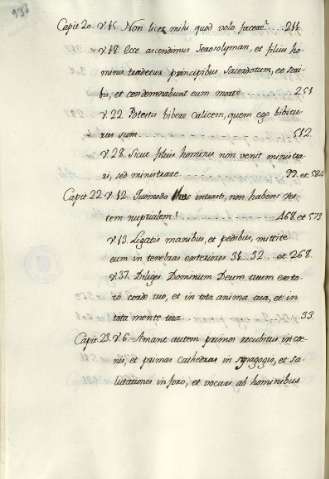 Capit 20. v. 15. Non licet mihi quod volo facere? ... 211
v. 18. Ecce ascendimus Ierosolymam, et filius ho
minis tradetur principibus Sacerdotum, et scri
bis, et condemnabunt eum morte ... 251
v. 22. Potestis bibere calicem, quem ego bibitu
rus sum ... 512.
v. 28. Sicut filius hominis non venit ministra
ri, sed ministrare ... et 524
Capit 22. v. 12. Quomodo huc intrasti, non habens ves
tem nuptialem? ... 468. et 573
v. 13. Ligatis manibus, et pedibus, mittite
eum in tenebras exteriores 31. 32. et 268.
v. 37. Diliges Dominum Deum tuum ex to
to corde tuo, et in tota anima tua, et in
tota mente tua ... 33
Capit. 23. v. 6. Amant autem primos recubitus in cœ
nis, et primas cathedras in synagogis, et sa
lutationes in foro, et vocari ab hominibus